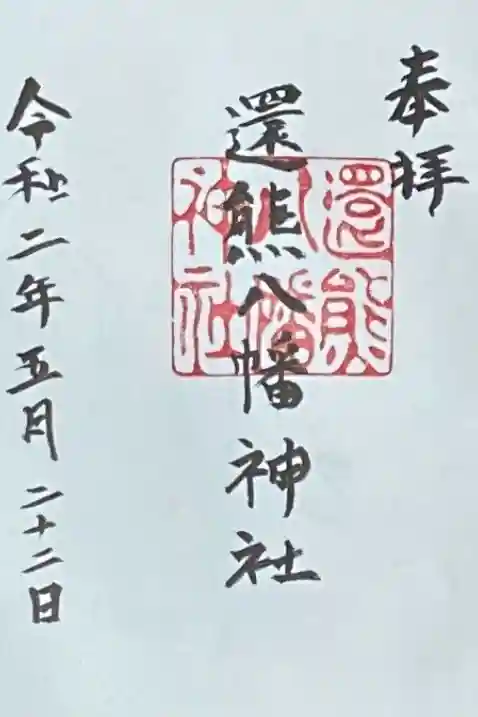 奉拝
還熊八幡神社
還熊
八幡
神社
令和二年五月二十二日